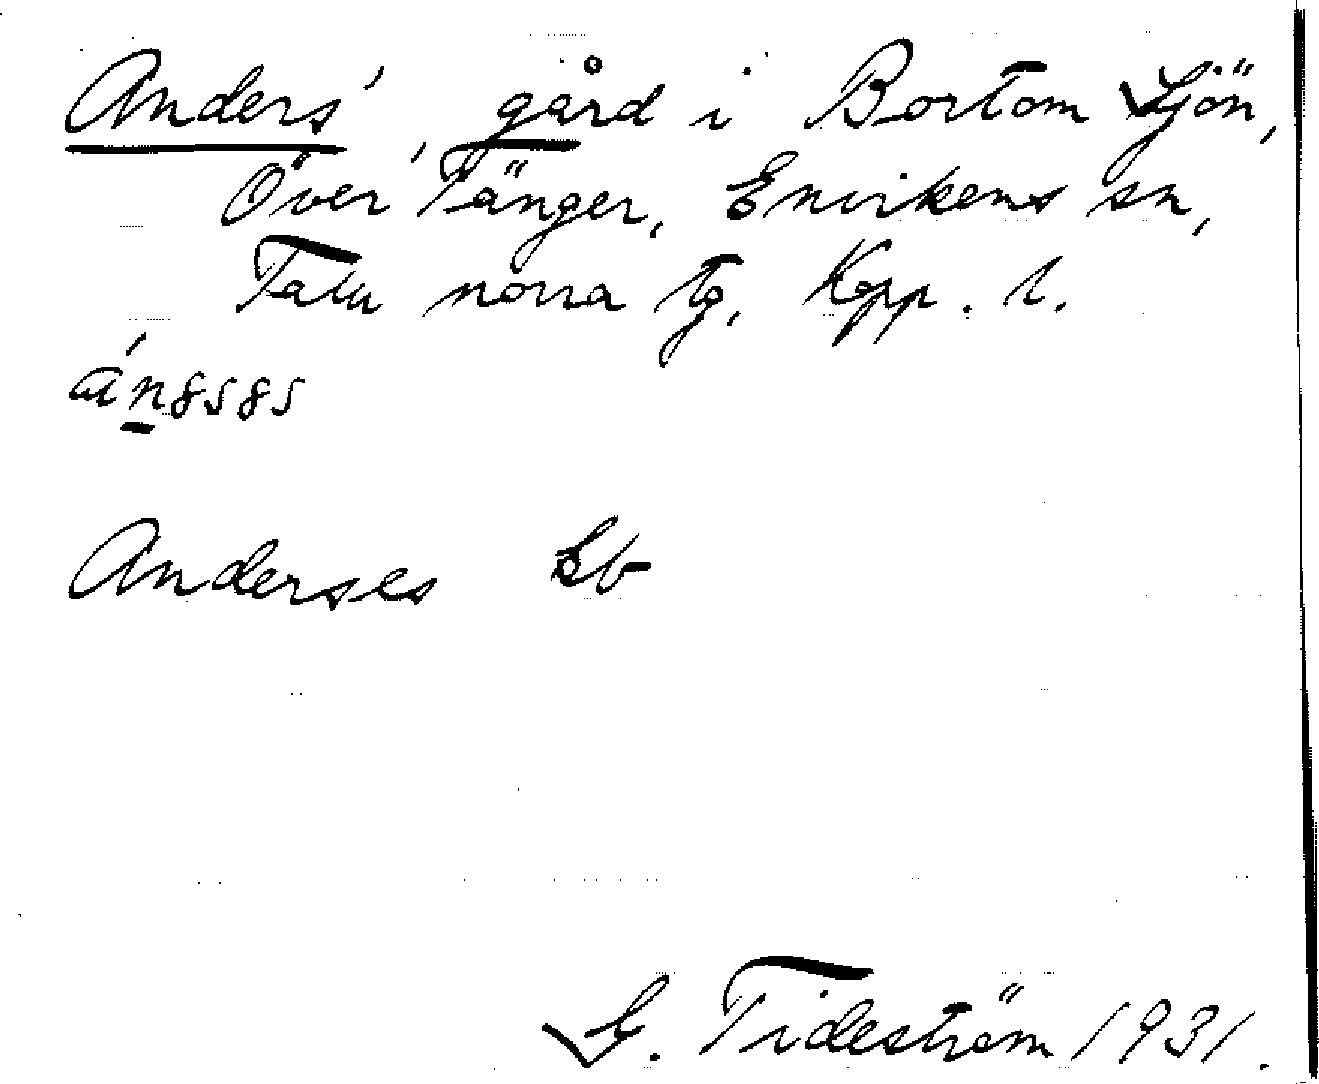 Anders', gård i Bortom Sjön,
Över Tänger, Envikens sn,
Falu norra tg, Kopp. l.
Anderses
G. Tideström 1931.